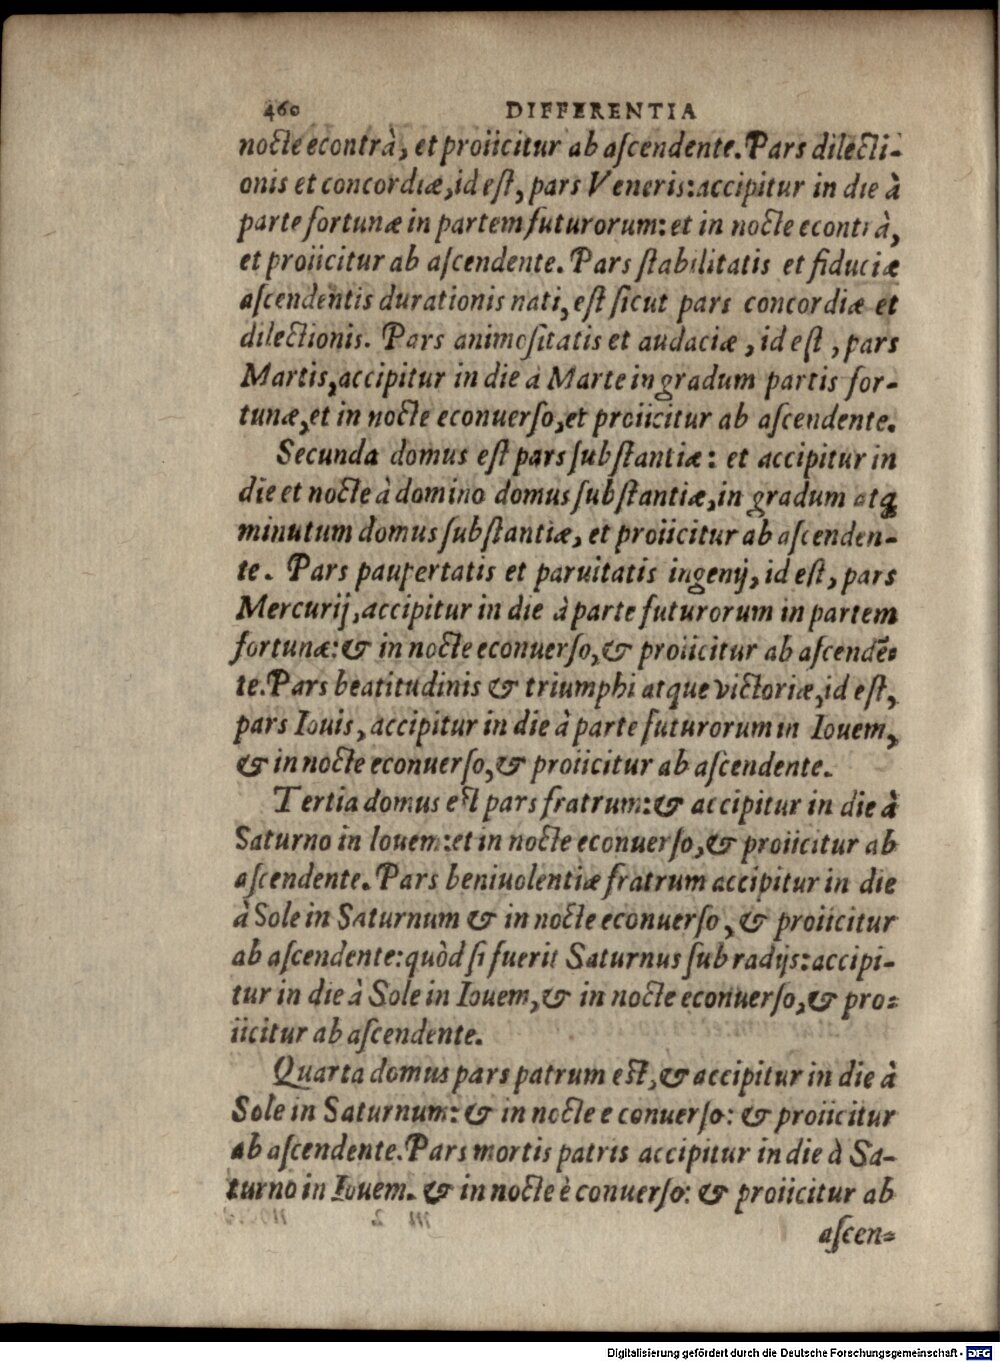 460 DIFFERENTIA
nocte econtrà, et proiicitur ab ascendente. Pars dilecti-
onis et concordiæ, id est, pars Veneris: accipitur in die à
parte fortunæ in partem futurorum: et in nocte econtrà,
et proiicitur ab ascendente. Pars stabilitatis et fiduciæ
ascendentis durationis nati, est sicut pars concordiæ et
dilectionis. Pars animositatis et audaciæ, id est, pars
Martis, accipitur in die à Marte in gradum partis for-
tunæ, et in nocte econuerso, et proiicitur ab ascendente.
Secunda domus est pars substantiæ: et accipitur in
die et nocte à domino domus substantiæ, in gradum atq;
minutum domus substantiæ, et proiicitur ab ascenden-
te. Pars paupertatis et paruitatis ingenij, id est, pars
Mercurij, accipitur in die à parte futurorum in partem
fortunæ: & in nocte econuerso, & proiicitur ab ascendē-
te. Pars beatitudinis & triumphi atque victoriæ, id est,
pars Iouis, accipitur in die à parte futurorum in Iouem,
& in nocte econuerso, & proiicitur ab ascendente.
Tertia domus est pars fratrum: & accipitur in die à
Saturno in Iouem: et in nocte econuerso, & proiicitur ab
ascendente. Pars beniuolentiæ fratrum accipitur in die
à Sole in Saturnum & in nocte econuerso, & proiicitur
ab ascendente: quòd si fuerit Saturnus sub radijs: accipi-
tur in die à Sole in Iouem, & in nocte econuerso, & pro-
iicitur ab ascendente.
Quarta domus pars patrum est, & accipitur in die à
Sole in Saturnum: & in nocte e conuerso: & proiicitur
ab ascendente. Pars mortis patris accipitur in die à Sa-
turno in Iouem. & in nocte è conuerso: & proiicitur ab
ascen-
Digitalisierung gefördert durch die Deutsche Forschungsgemeinschaft - DFG